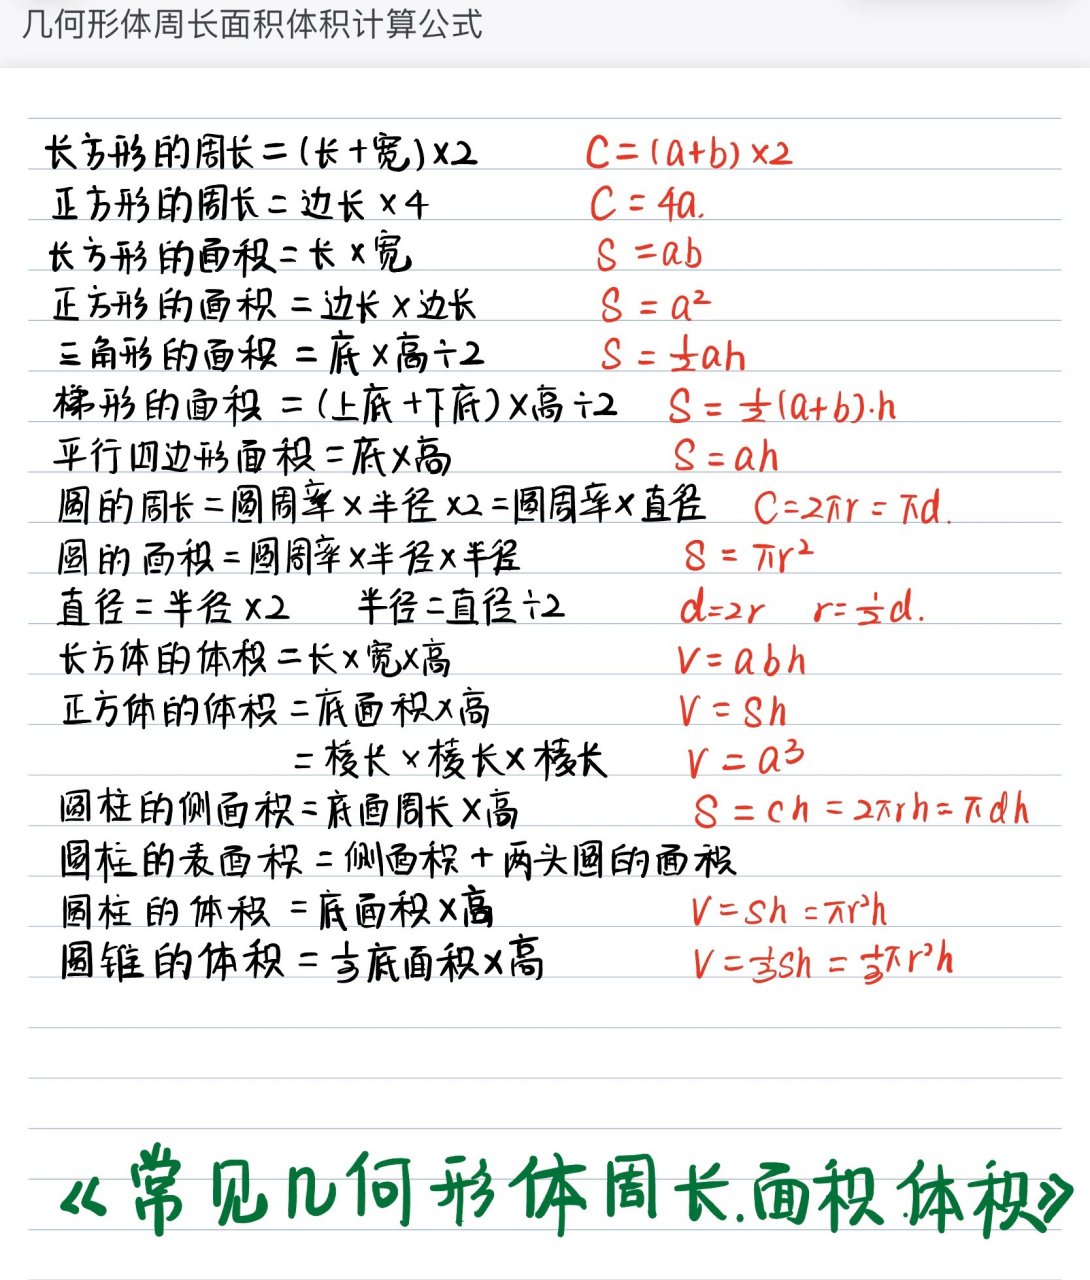 几何形体周长面积体积计算公式
长方形的周长=(长+宽)×2 C=(a+b)×2
正方形的周长=边长×4 C=4a.
长方形的面积=长×宽 S=ab
正方形的面积=边长×边长 S=a²
三角形的面积=底×高÷2 S=½ah
梯形的面积=(上底+下底)×高÷2 S=½(a+b)·h
平行四边形面积=底×高 S=ah
圆的周长=圆周率×半径×2=圆周率×直径 C=2πr=πd.
圆的面积=圆周率×半径×半径 S=πr²
直径=半径×2 半径=直径÷2 d=2r r=½d.
长方体的体积=长×宽×高 V=abh
正方体的体积=底面积×高 V=Sh
=棱长×棱长×棱长 V=a³
圆柱的侧面积=底面周长×高 S=ch=2πrh=πdh
圆柱的表面积=侧面积+两头圆的面积
圆柱的体积=底面积×高 V=Sh=πr²h
圆锥的体积=⅓底面积×高 V=⅓Sh=⅓πr²h
《常见几何形体周长.面积.体积》